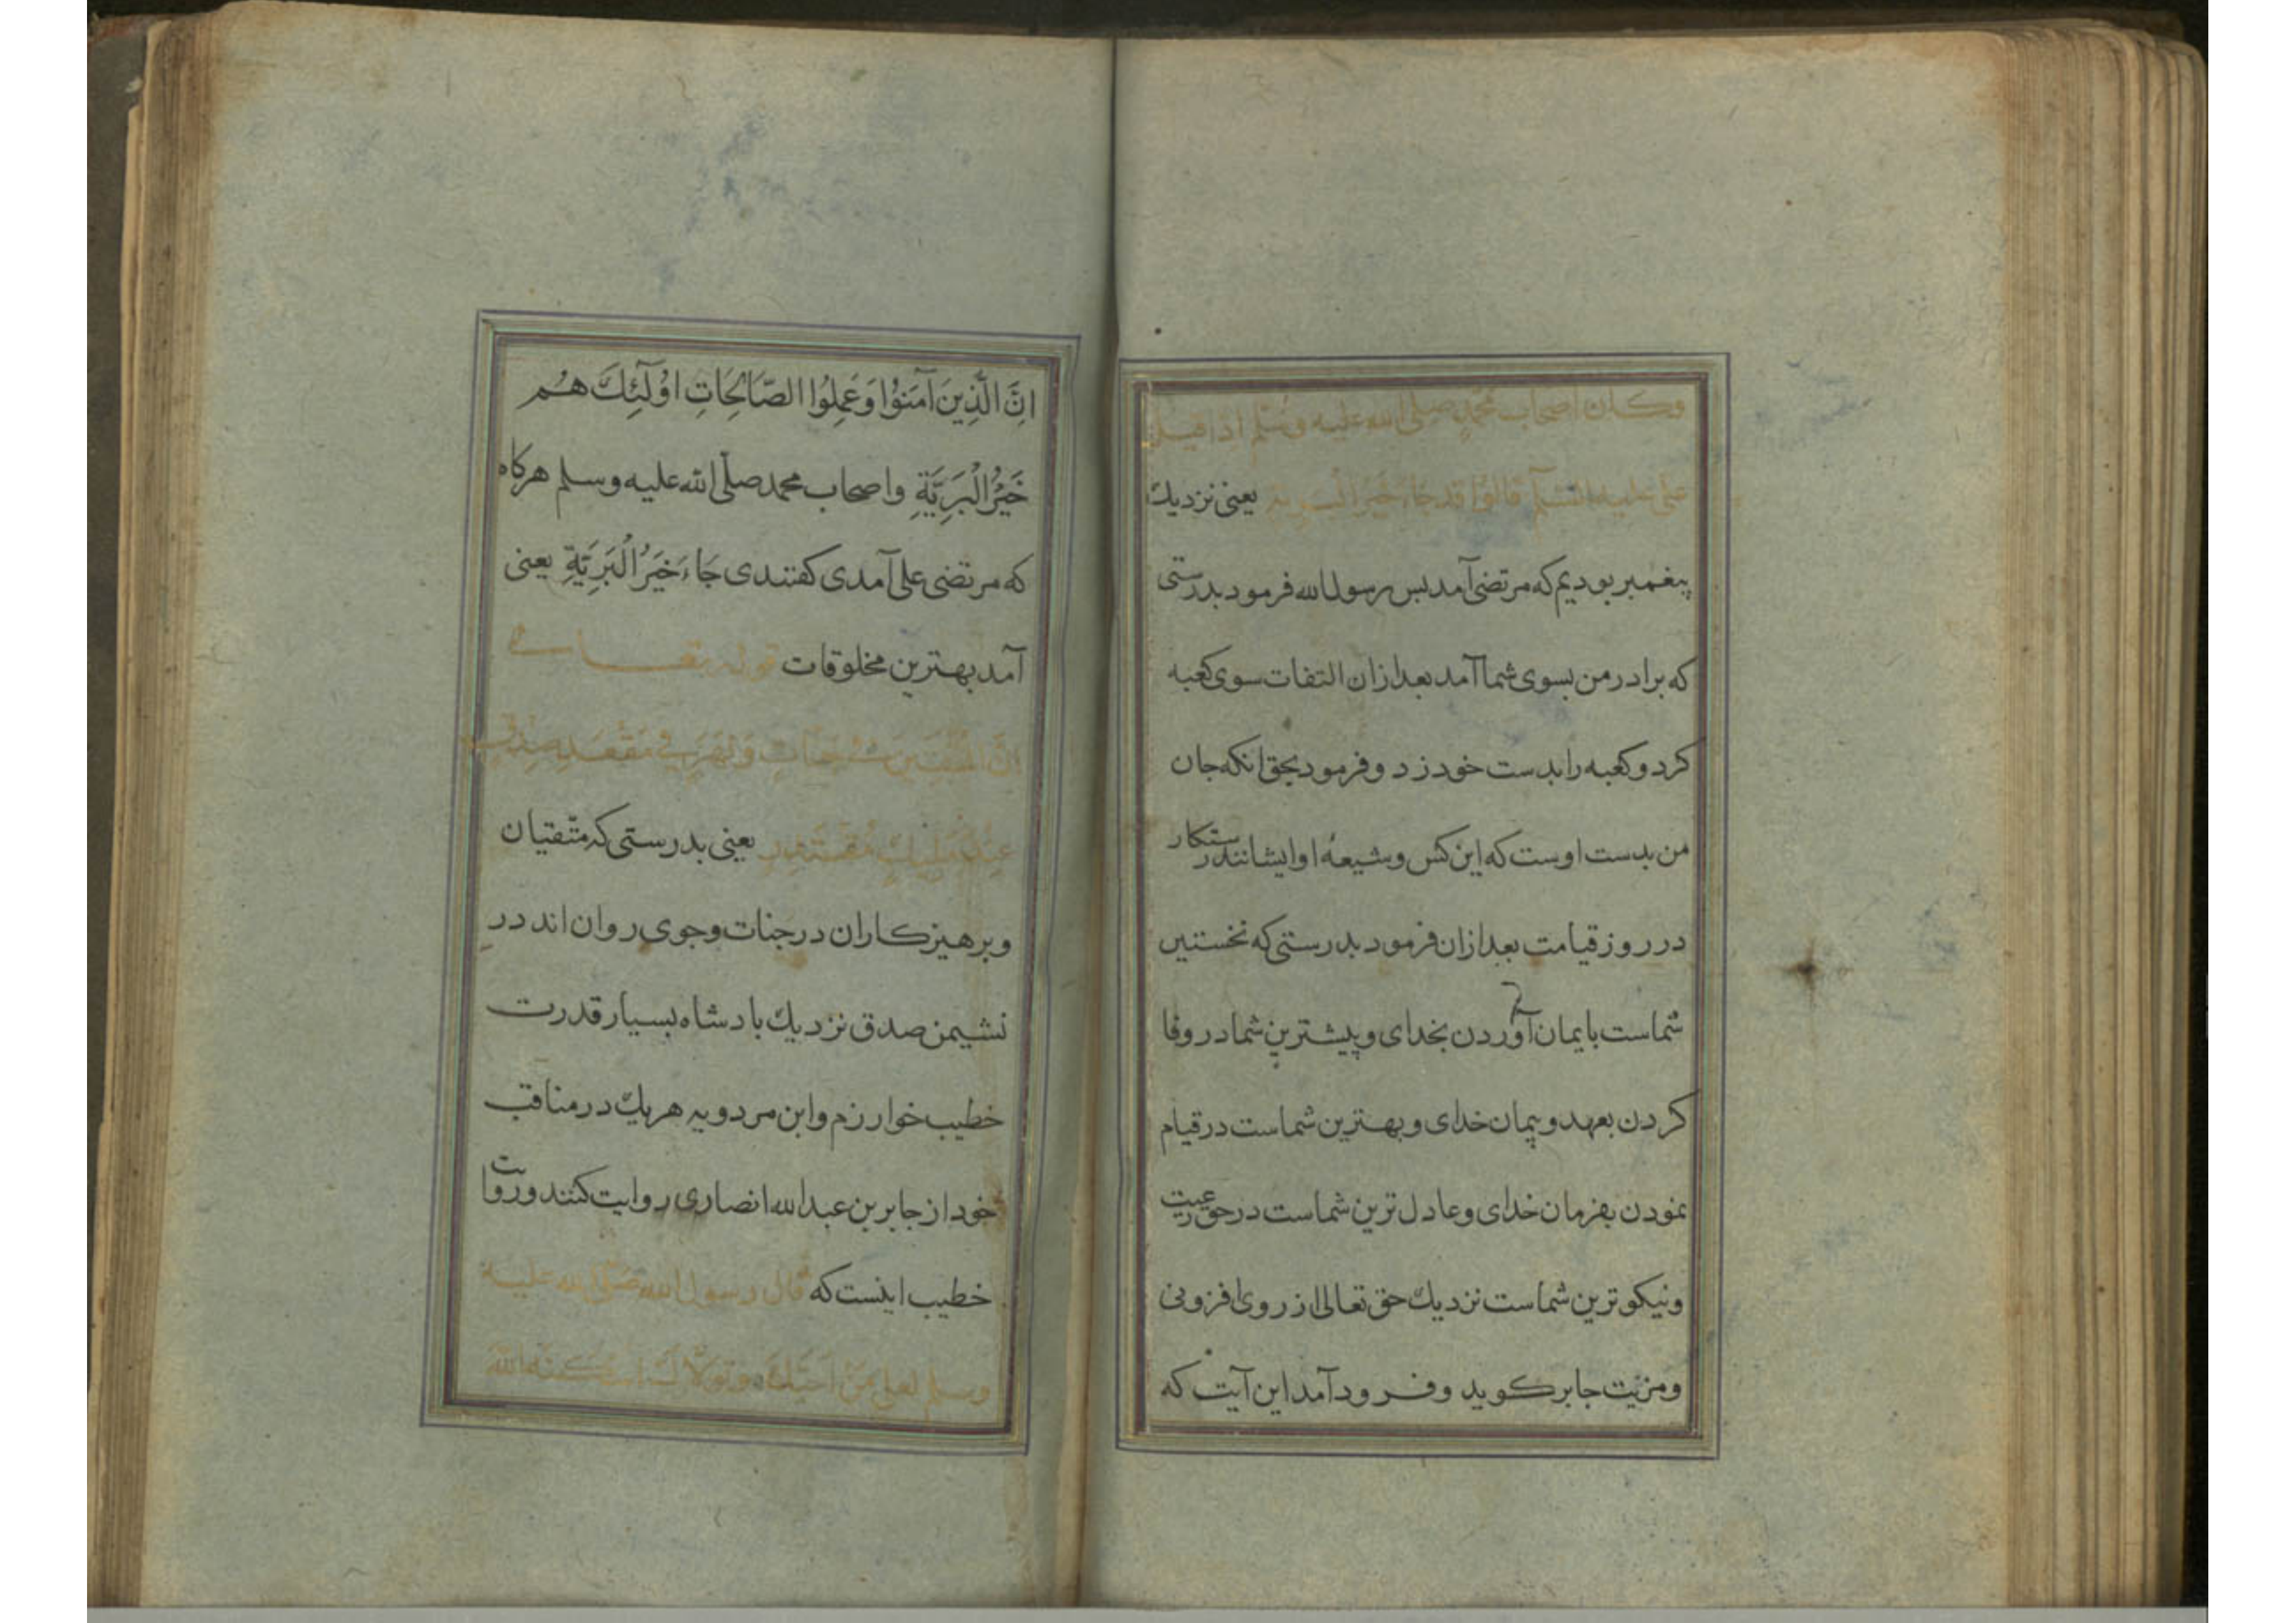 وكان اصحاب محمد صلى الله عليه وسلم اذا قيل
على عليه السلم قالوا قد جاء خير البرية يعنى نزديك
پيغمبر بوديم كه مرتضى آمد بس رسول الله فرمود بدرستى
كه برادر من بسوى شما آمد بعد ازان التفات سوى كعبه
كرد و كعبه را بدست خود زد و فرمود بحق انكه جان
من بدست اوست كه اين كس و شيعهٔ او ايشانند رستكار
در روز قيامت بعد ازان فرمود بدرستى كه نخستين
شماست بايمان آوردن بخداى و پيشترين شما در وفا
كردن بعهد و پيمان خداى و بهترين شماست در قيام
نمودن بفرمان خداى و عادل ترين شماست در حق رعيت
و نيكوترين شماست نزديك حق تعالى از روى افزونى
و مزيت جابر كويد و فرود آمد اين آيت كه
اِنَّ الَّذِينَ آمَنُوْا وَعَمِلُوا الصَّالِحَاتِ اُولٓئِكَ هُم
خَيْرُ الْبَرِيَّةِ واصحاب محمد صلّى الله عليه وسلم هركاه
كه مرتضى على آمدى كفتندى جَاءَ خَيْرُ الْبَرِيَّةِ يعنى
آمد بهترين مخلوقات قوله تعالى
اِنَّ الْمُتَّقِينَ فِى جَنَّاتٍ وَنَهَرٍ فِى مَقْعَدِ صِدْقٍ
عِنْدَ مَلِيكٍ مُقْتَدِرٍ يعنى بدرستى كه متّقيان
و برهيزكاران در جنات و جوى روان اند در
نشيمن صدق نزديك بادشاه بسيار قدرت
خطيب خوارزم و ابن مردويه هريك در مناقب
خود از جابر بن عبدالله انصارى روايت كنند و روايت
خطيب اينست كه قال رسول الله صلّى الله عليه
وسلم لعلى مَنْ اَحَبَّكَ وتولاك اسكنه الله